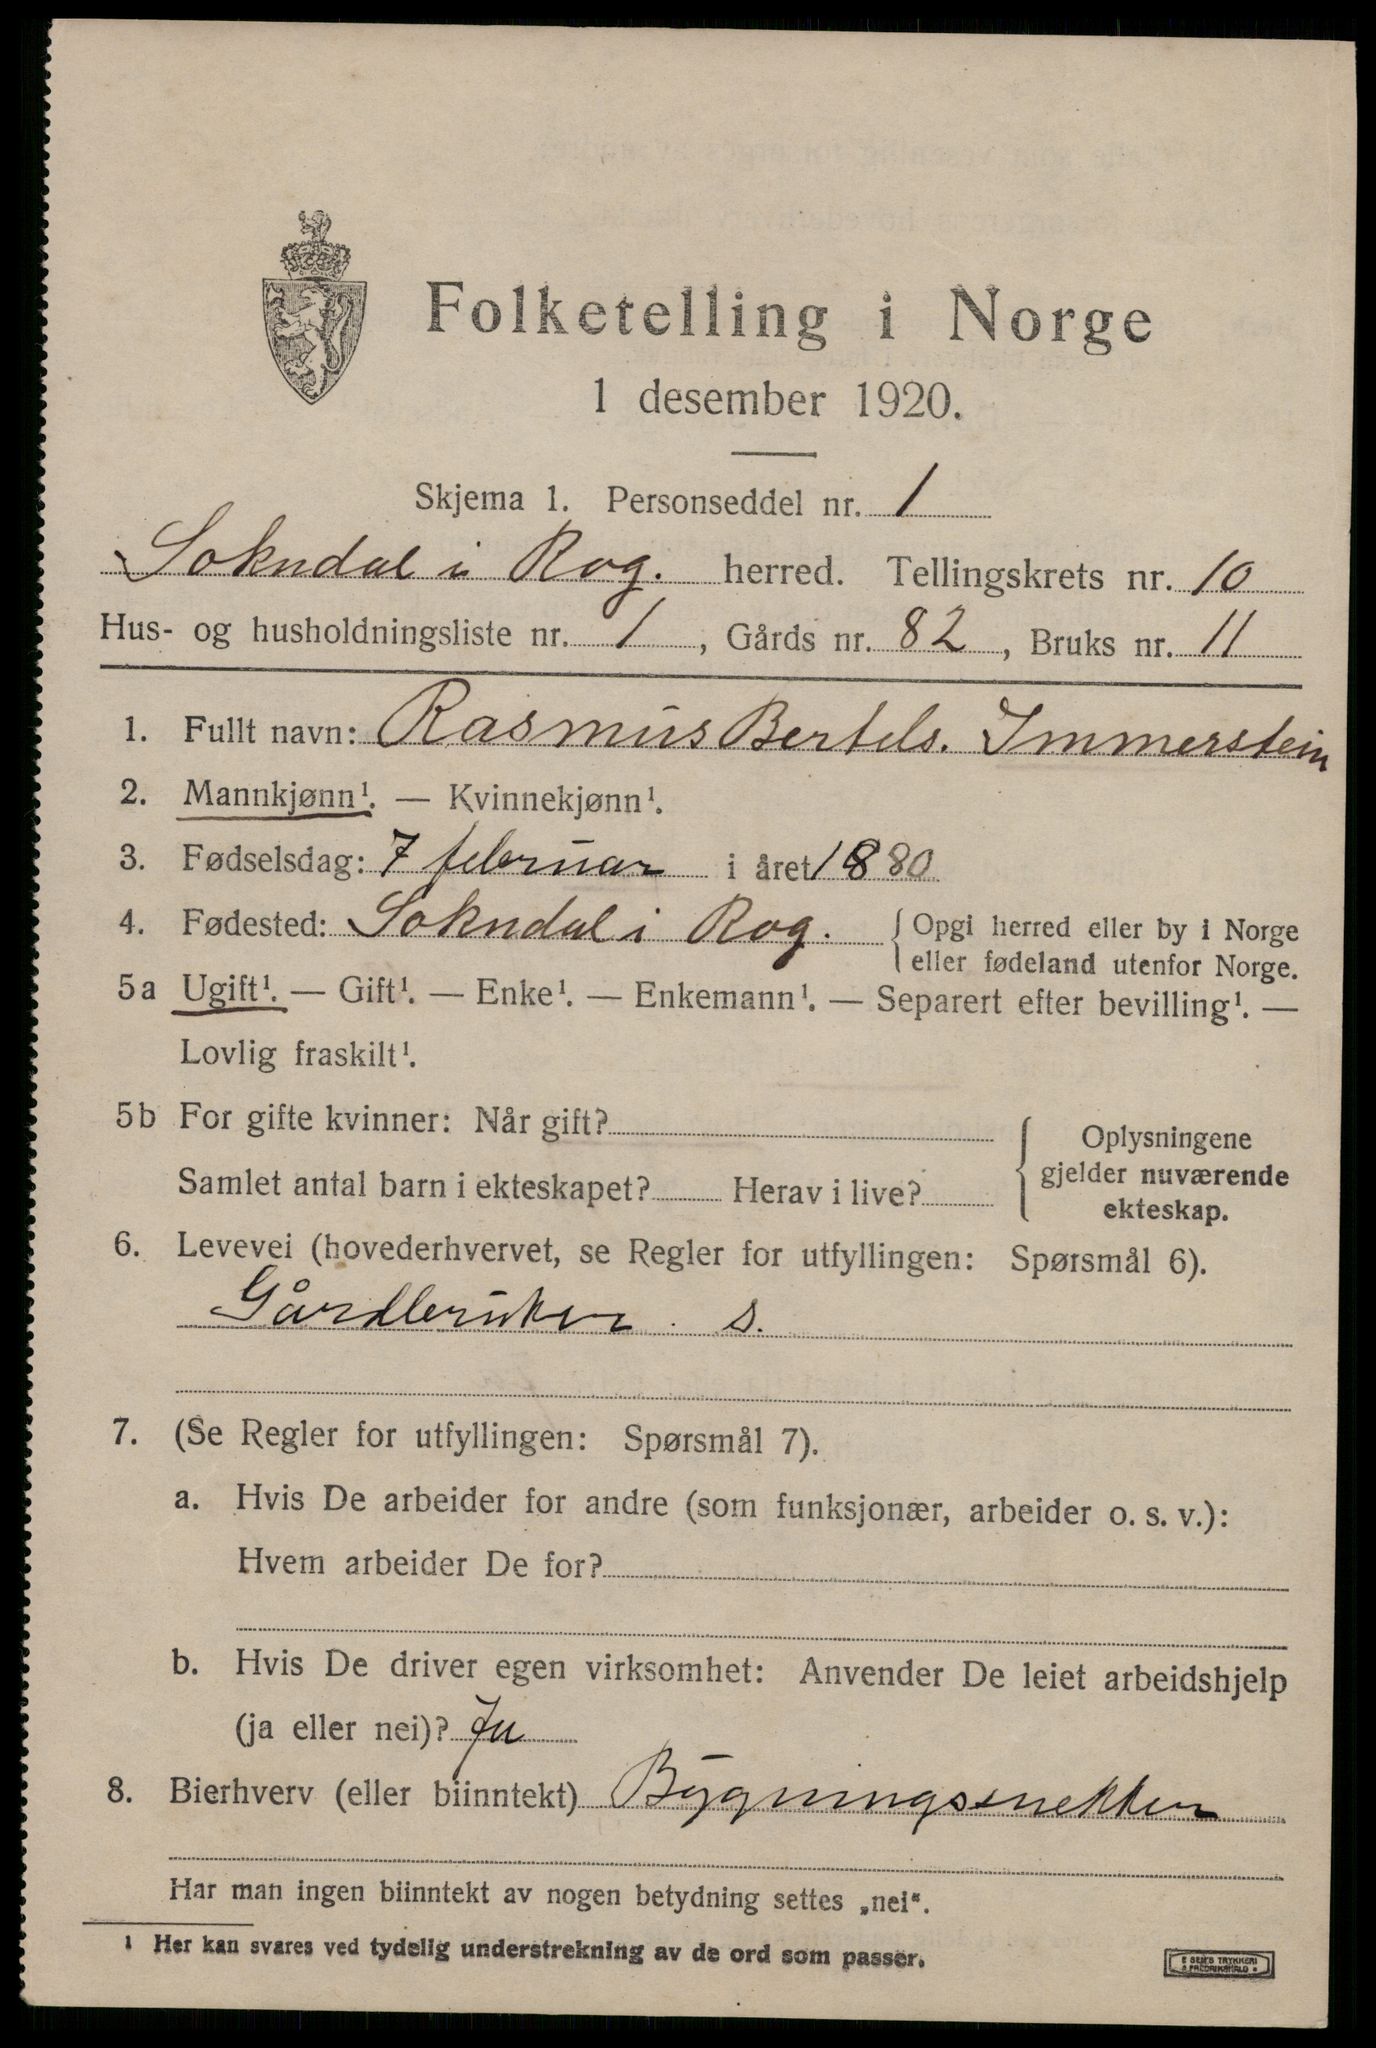 Folketelling i Norge
1 desember 1920.
Skjema 1. Personseddel nr. 1
Sokndal i Rog. herred. Tellingskrets nr. 10
Hus- og husholdningsliste nr. 1, Gårds nr. 82, Bruks nr. 11
1. Fullt navn: Rasmus Bertels. Immerstein
2. Mannkjønn¹. — Kvinnekjønn¹.
3. Fødselsdag: 7 februar i året 1880
4. Fødested: Sokndal i Rog. { Opgi herred eller by i Norge
eller fødeland utenfor Norge.
5a Ugift¹. — Gift¹. — Enke¹. — Enkemann¹. — Separert efter bevilling¹. —
Lovlig fraskilt¹.
5b For gifte kvinner: Når gift?
Samlet antal barn i ekteskapet? Herav i live?
{ Oplysningene
gjelder nuværende
ekteskap.
6. Levevei (hovederhvervet, se Regler for utfyllingen: Spørsmål 6).
Gårdbruker. s.
7. (Se Regler for utfyllingen: Spørsmål 7).
a. Hvis De arbeider for andre (som funksjonær, arbeider o. s. v.):
Hvem arbeider De for?
b. Hvis De driver egen virksomhet: Anvender De leiet arbeidshjelp
(ja eller nei)? Ja
8. Bierhverv (eller biinntekt) Bygningssnekker
Har man ingen biinntekt av nogen betydning settes „nei“.
1 Her kan svares ved tydelig understrekning av de ord som passer.
E SEM'S TRYKKERI
FREDRIKSHALD